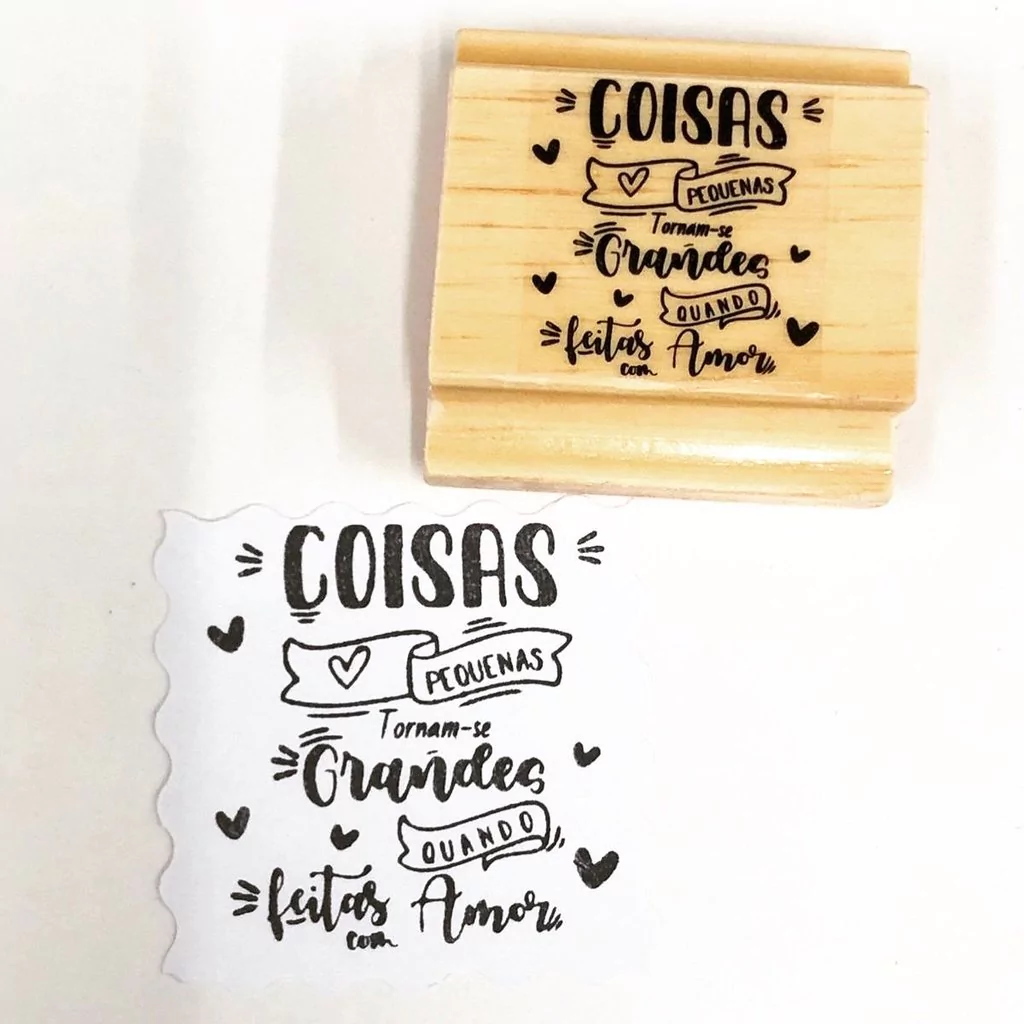 COISAS
PEQUENAS
Tornam-se
Grandes
QUANDO
feitas com Amor
COISAS
PEQUENAS
Tornam-se
Grandes
QUANDO
feitas com Amor